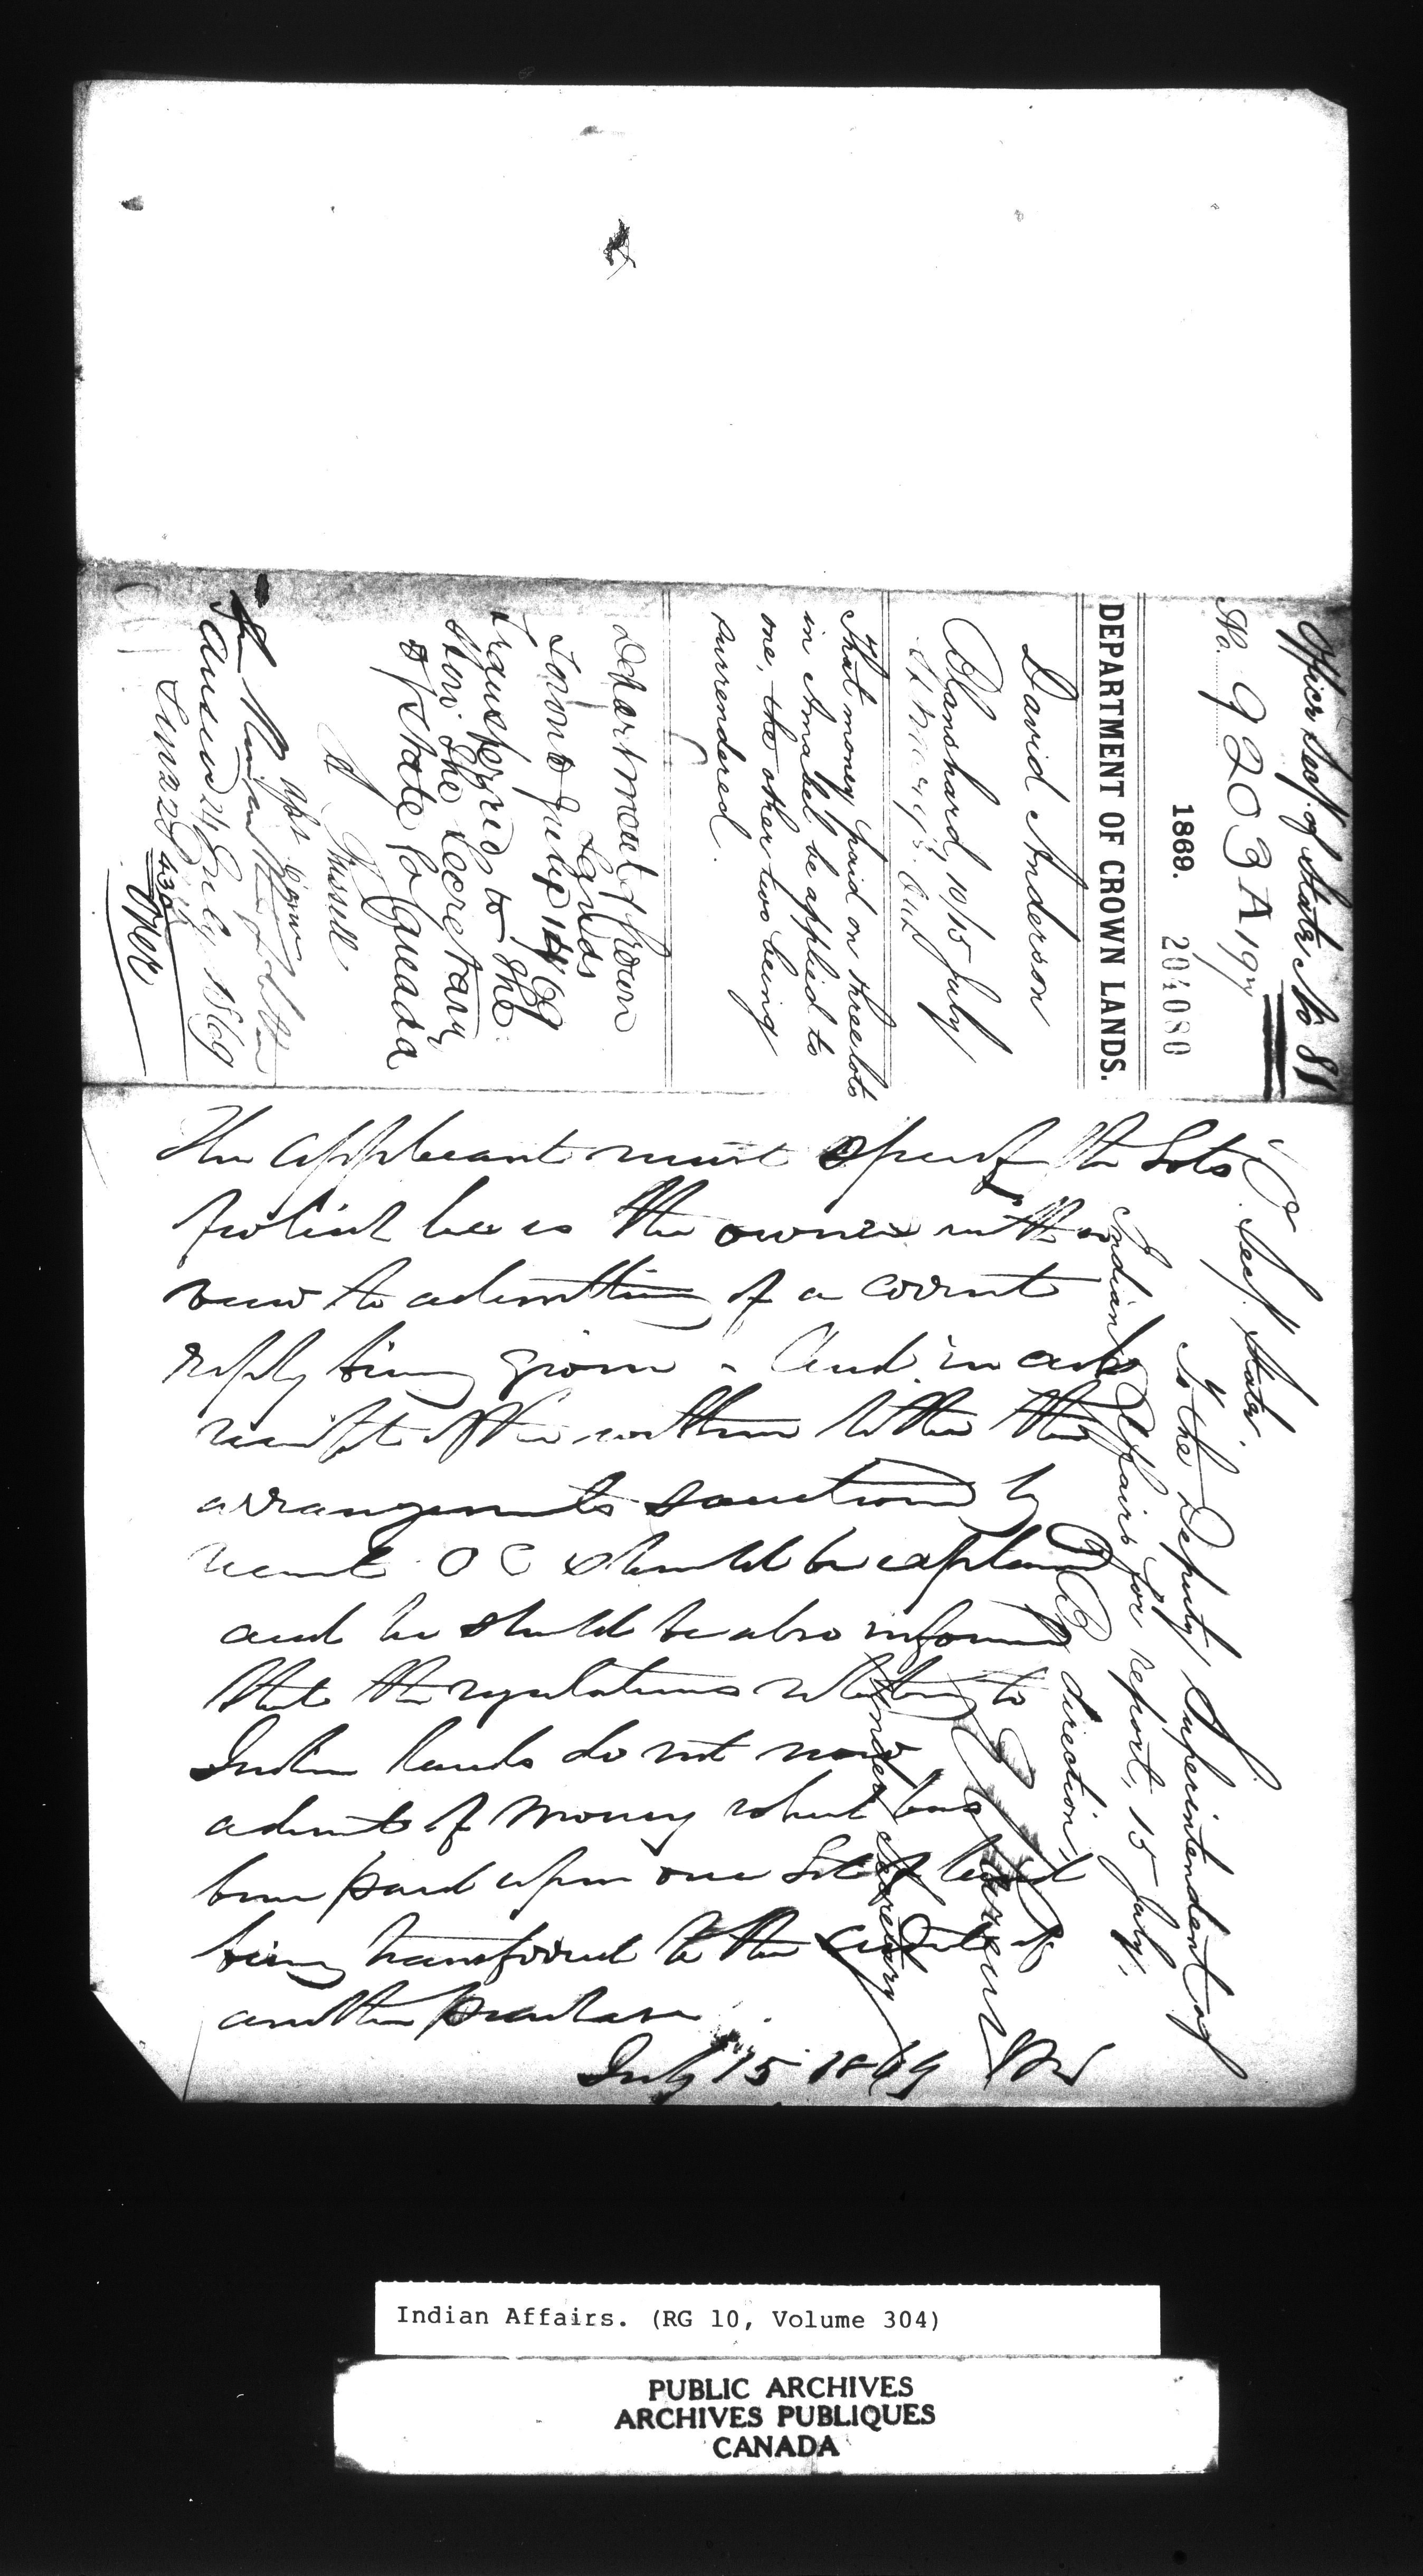 Office Secy. of State, No 88
No. 9203 A 197
1869. 204080
DEPARTMENT OF CROWN LANDS.
David Anderson
Blanshard, 10/15 July
St. Mary's.
That money paid on three lots
in Amabel be applied to
one, the other two being
surrendered.
Department of Crown
Lands
Toronto July 14/69
Transferred to the
Hon: the Secretary
of State for Canada
A Russell
Answd 24 July 1869
The applicant must specify the Lots
of which he is the owner with a
view to admitting of a correct
reply being given - And in
receipt of the within letter the
arrangements sanctioned by
recent O C should be explained
and he should be also informed
that the regulations relating to
Indian lands do not now
admit of money which has
been paid upon one Lot of land
being transferred to the credit of
another purchase.
July 15 1869
Secy. State.
To the Deputy Superintendent of
Indian Affairs for report, 15 July,
By direction,
E Parent
Under Secretary
Indian Affairs. (RG 10, Volume 304)
PUBLIC ARCHIVES
ARCHIVES PUBLIQUES
CANADA